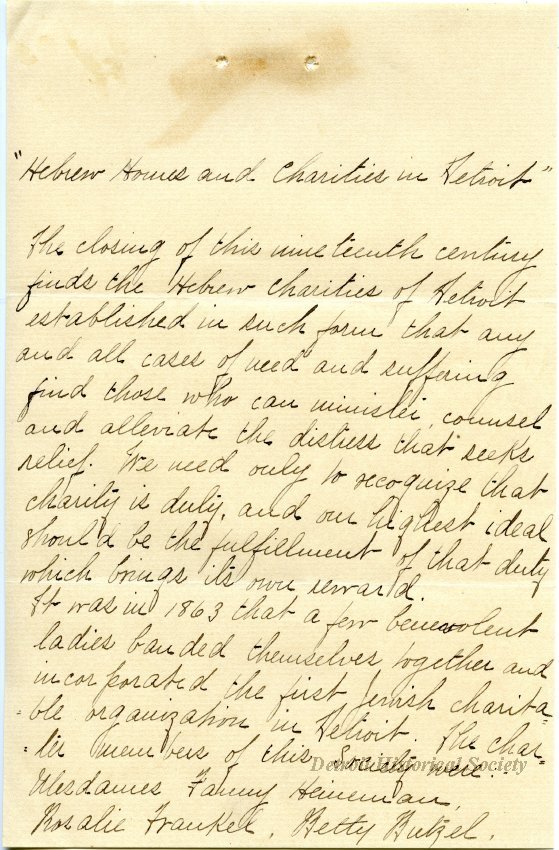 "Hebrew Homes and Charities in Detroit"
The closing of this nineteenth century
finds the Hebrew Charities of Detroit
established in such form that any
and all cases of need and suffering
find those who can minister, counsel
and alleviate the distress that seeks
relief. We need only to recognize that
charity is duty, and our highest ideal
should be the fulfillment of that duty
which brings its own reward.
It was in 1863 that a few benevolent
ladies banded themselves together and
incorporated the first Jewish charita-
-ble organization in Detroit. The char-
-ter members of this Society were:
Mesdames Fanny Heineman,
Rosalie Frankel, Betty Butzel,
Detroit Historical Society